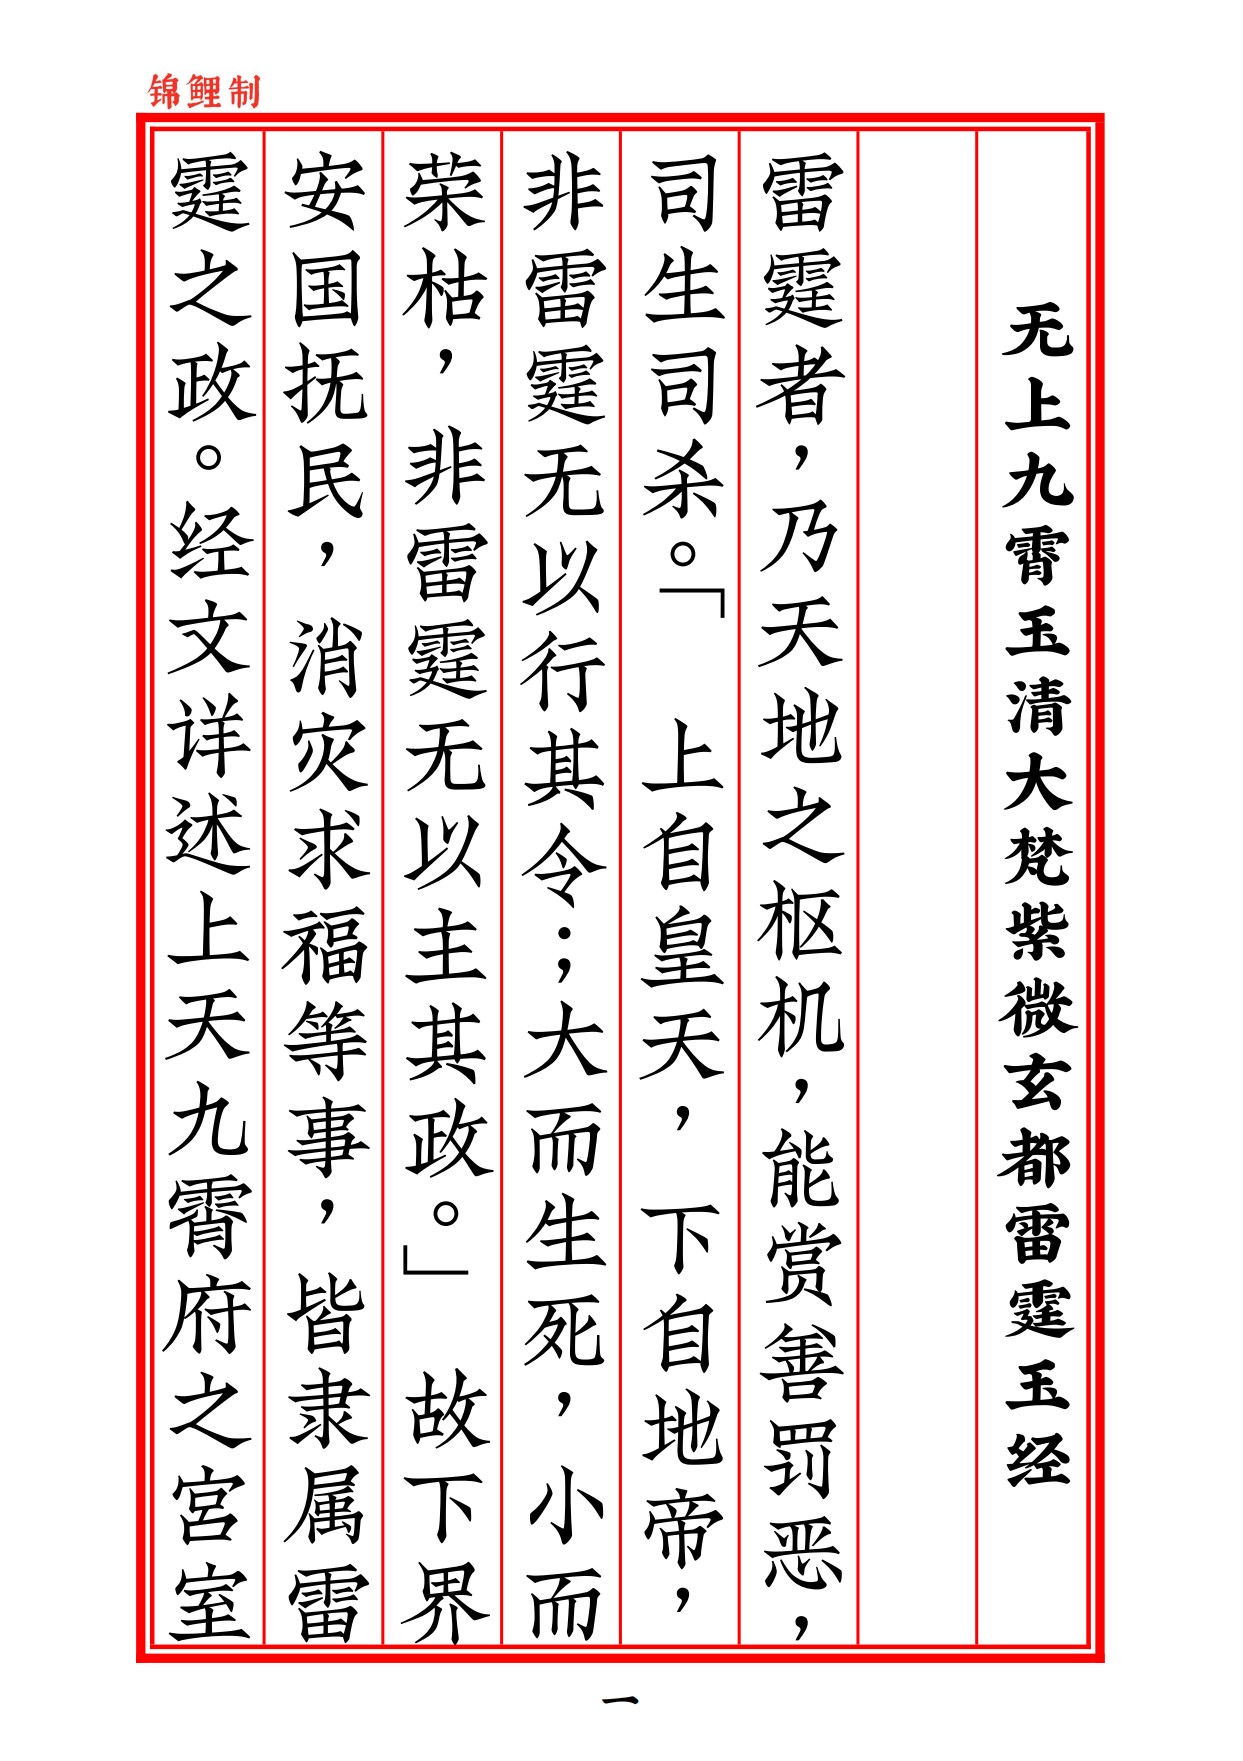 锦鲤制
无上九霄玉清大梵紫微玄都雷霆玉经
雷霆者，乃天地之枢机，能赏善罚恶，
司生司杀。「上自皇天，下自地帝，
非雷霆无以行其令；大而生死，小而
荣枯，非雷霆无以主其政。」故下界
安国抚民，消灾求福等事，皆隶属雷
霆之政。经文详述上天九霄府之宫室
一